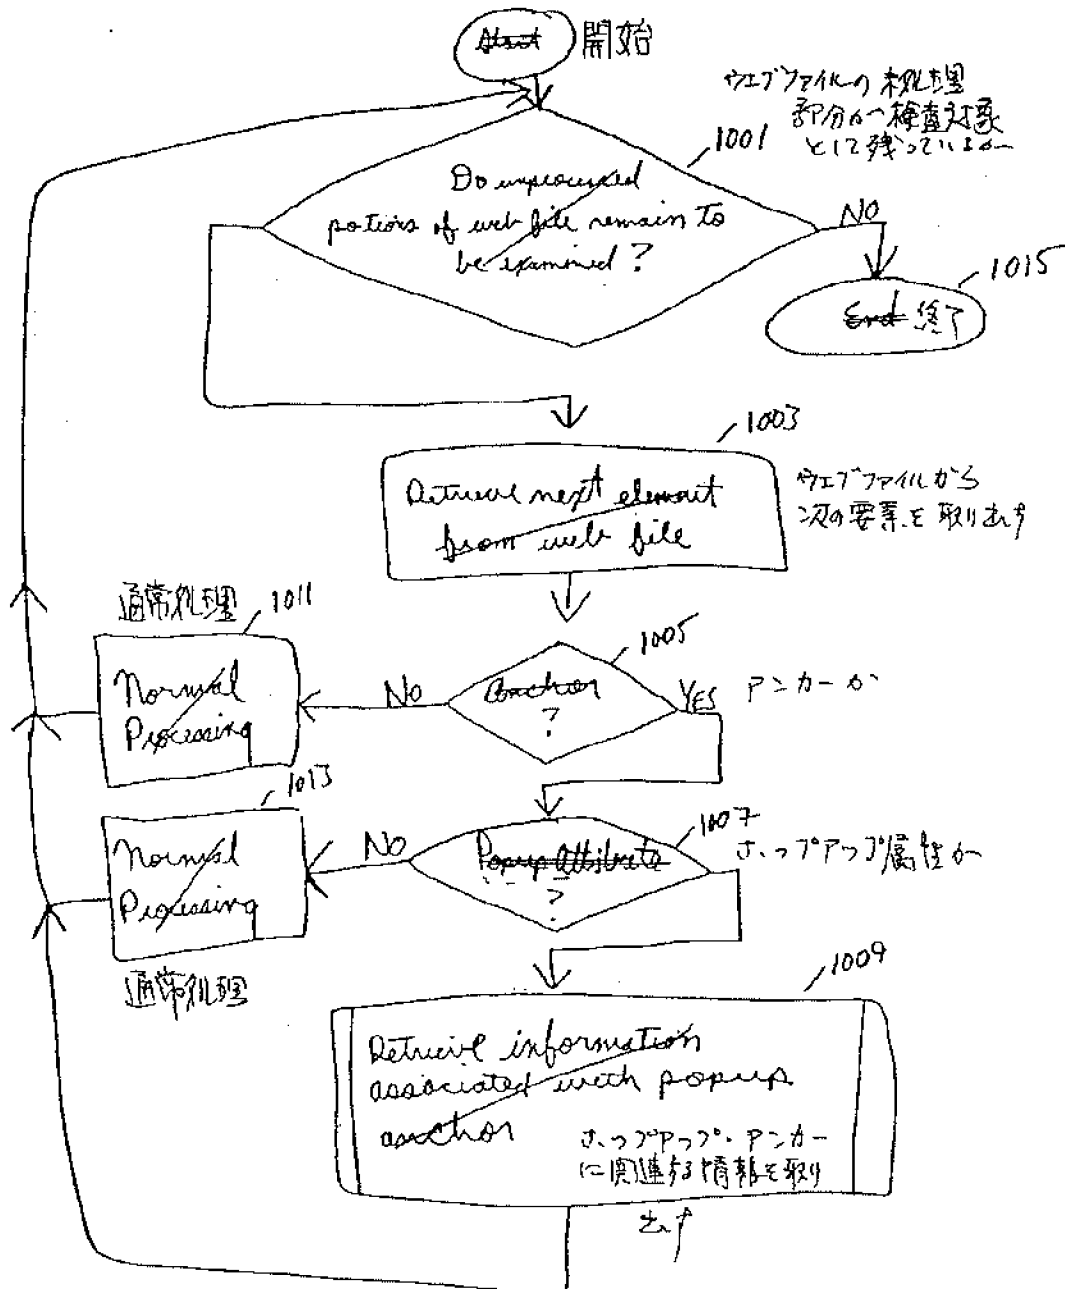 Start 開始
ウェブファイルの未処理
部分が検査対象
として残っているか
1001
Do unprocessed
potions of web file remain to
be examined?
NO
1015
End 終了
1003
Retrieve next element
from web file
ウェブファイルから
次の要素を取り出す
通常処理
1011
Normal
Processing
No
1005
Anchor
?
YES
アンカーか
1013
Normal
Processing
通常処理
No
1007
Popup attribute
?
ポップアップ属性か
1009
Retrieve information
associated with popup
anchor
ポップアップ・アンカー
に関連する情報を取り
出す